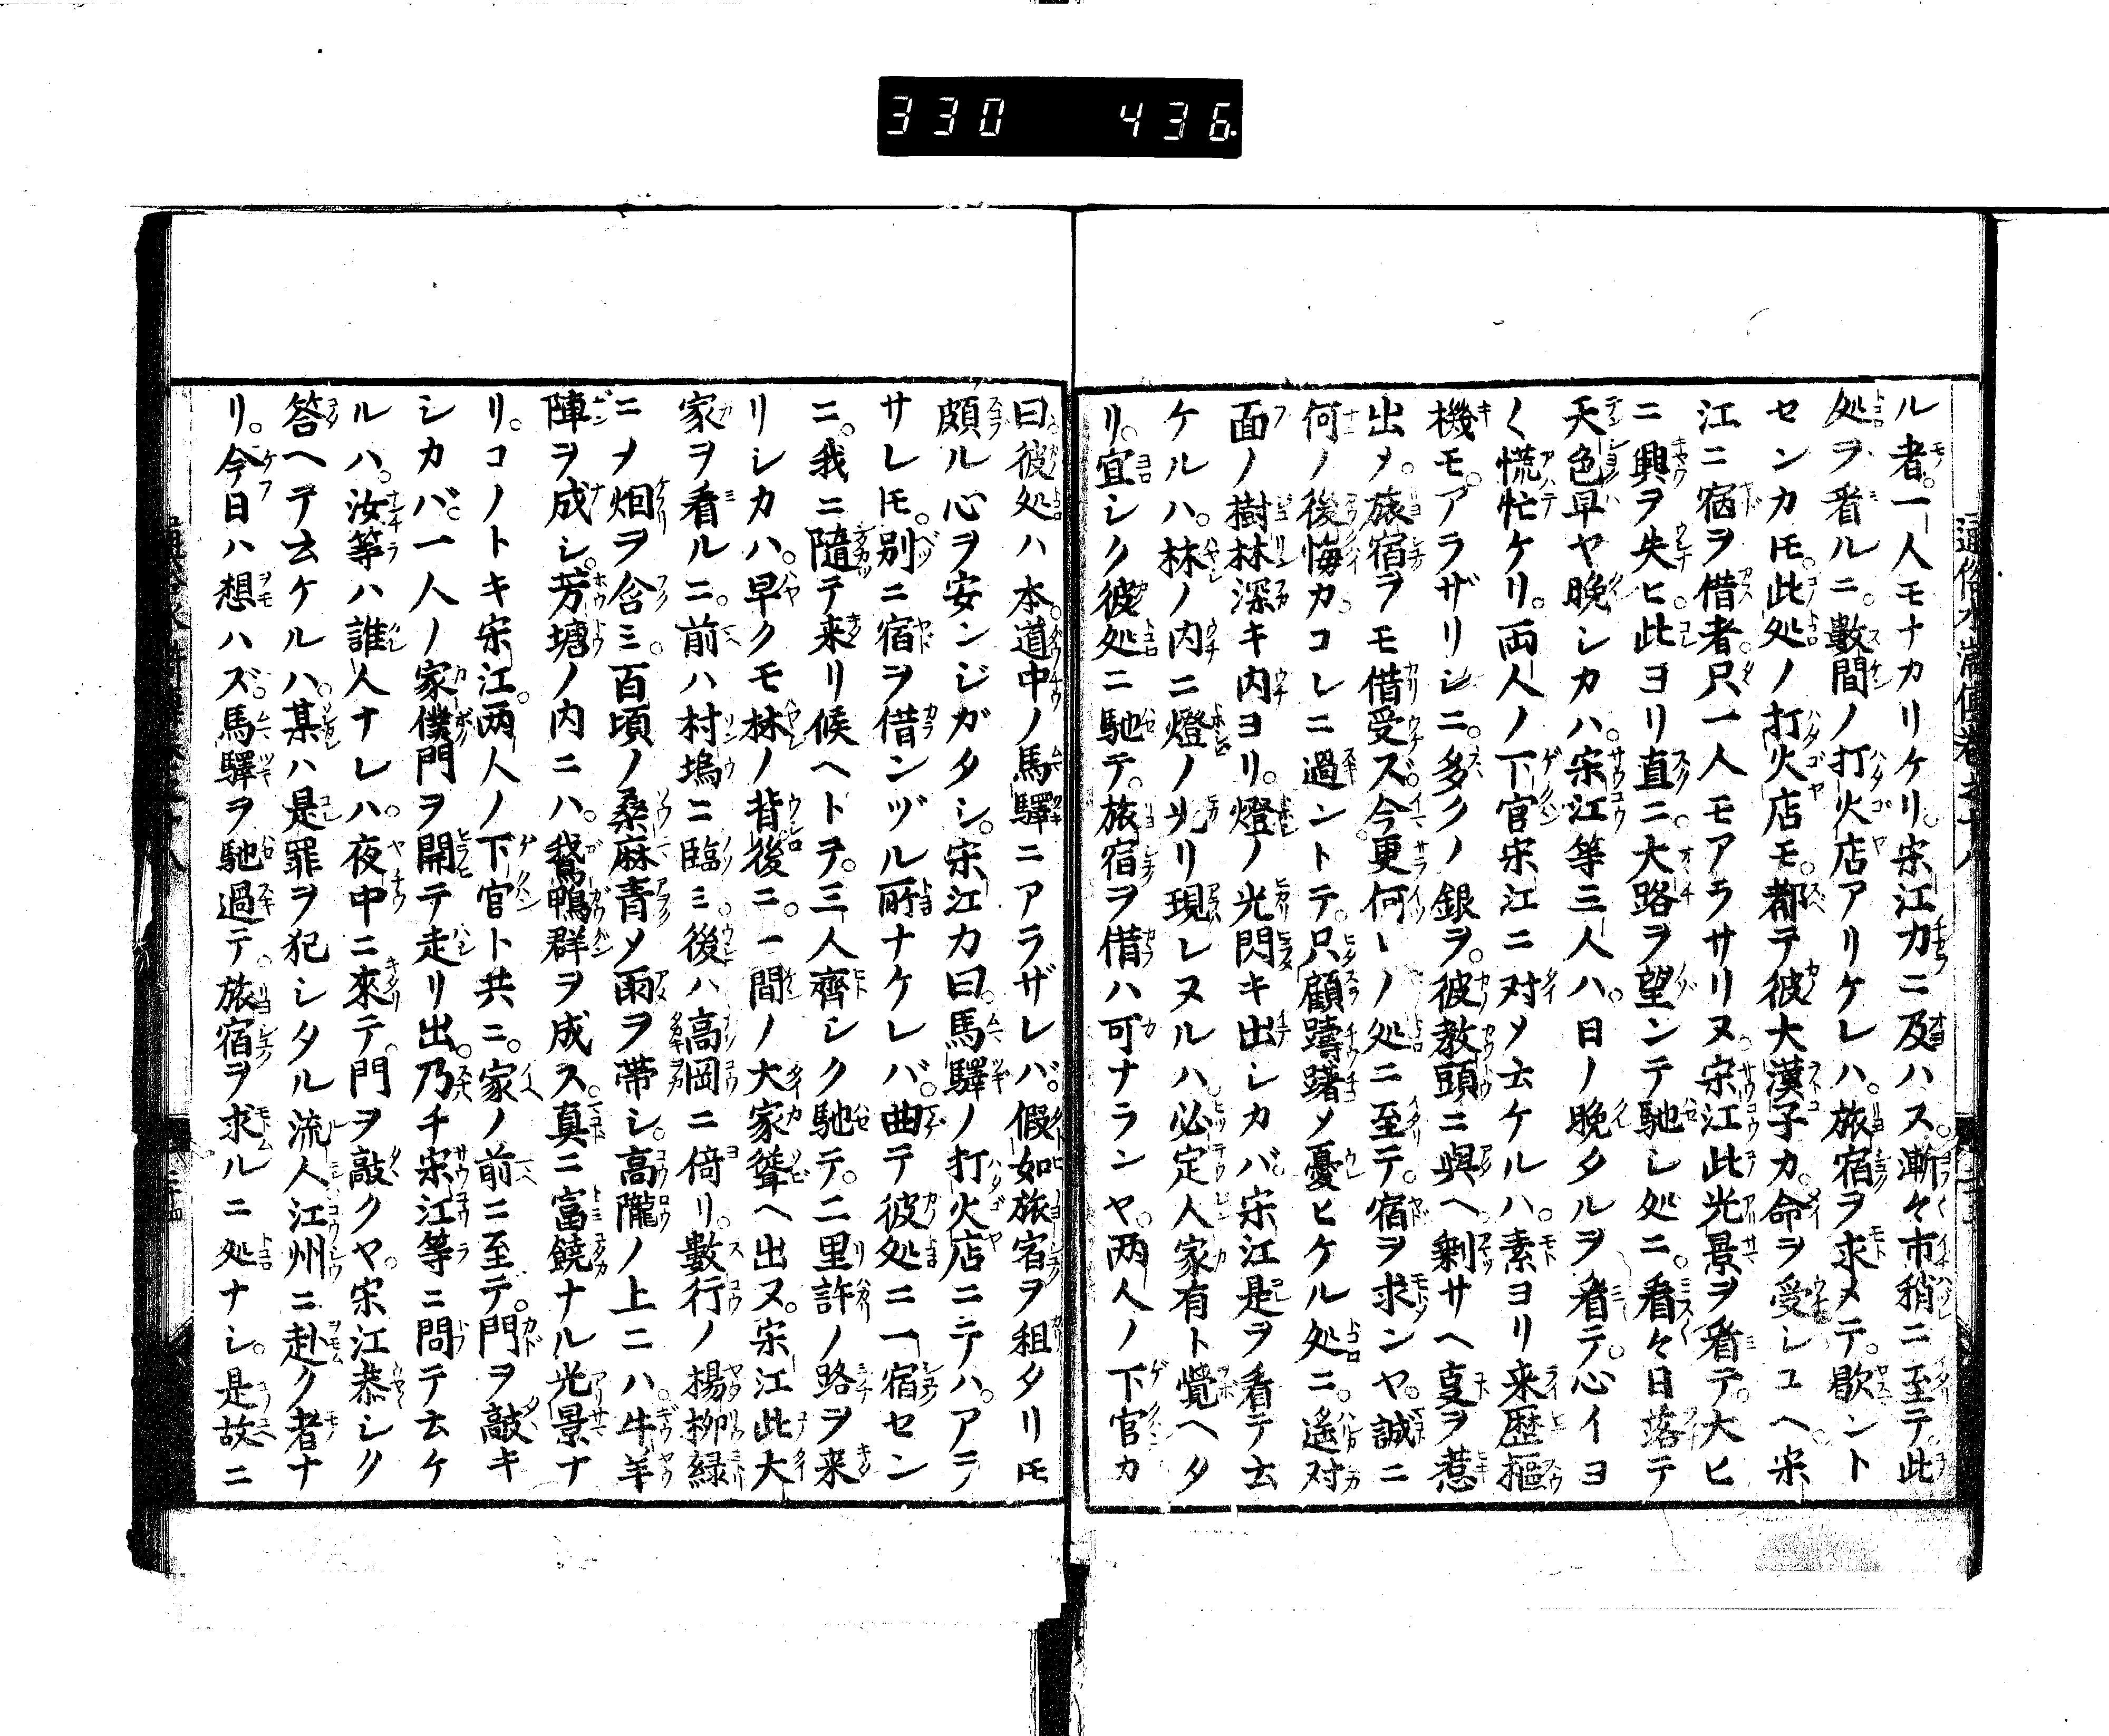 330 436.
ル者。一人モナカリケリ。宋江力ニ及ハス。漸々市稍ニ至テ。此
処ヲ看ルニ。數間ノ打火店アリケレハ。旅宿ヲ求メテ。歇ント
センカ𪜈。此処ノ打火店モ。都テ彼大漢子カ。命ヲ受シユヘ。宋
江ニ宿ヲ借者。只一人モアラサリヌ。宋江此光景ヲ看テ。大ヒ
ニ興ヲ失ヒ。此ヨリ直ニ。大路ヲ望ンテ馳レ処ニ。看々日落テ
天色早ヤ晩シカハ。宋江等三人ハ。日ノ晩タルヲ看テ。心イヨ
〱慌忙ケリ。両人ノ下官宋江ニ対メ云ケルハ。素ヨリ来歴摳
機モ。アラザリシニ。多クノ銀ヲ。彼教頭ニ與ヘ。剰サヘ㕝ヲ惹
出メ。旅宿ヲモ借受ズ。今更何レノ処ニ至テ。宿ヲ求ンヤ。誠ニ
何ノ後悔カ。コレニ過ントテ。只顧躊躇メ憂ヒケル処ニ。遙対
面ノ樹林深キ内ヨリ。燈ノ光閃キ出シカバ。宋江是ヲ看テ云
ケルハ。林ノ内ニ燈ノ光リ現レヌルハ。必定人家有ト覺ヘタ
リ。宜シク彼処ニ馳テ。旅宿ヲ借ハ可ナランヤ。两人ノ下官カ
曰彼処ハ本。道中ノ馬驛ニアラザレバ。假如旅宿ヲ租タリ𪜈
頗ル心ヲ安ンジガタシ。宋江カ曰。馬驛ノ打火店ニテハ。アラ
サレ𪜈。別ニ宿ヲ借ンヅル所ナケレバ。曲テ彼処ニ一宿セン
ニ。我ニ隨テ来リ候ヘトヲ。三人齊シク馳テ。二里許ノ路ヲ来
リシカハ。早クモ林ノ背後ニ。一間ノ大家聳ヘ出ヌ。宋江此大
家ヲ看ルニ。前ハ村塢ニ臨ミ。後ハ高岡ニ倚リ。數行ノ楊柳緑
ニメ烟ヲ含ミ。百頃ノ桑麻青メ雨ヲ帯シ。高隴ノ上ニハ。牛羊
陣ヲ成シ。芳塘ノ内ニハ。鵞鴨群ヲ成ス。真ニ富饒ナル光景ナ
リ。コノトキ宋江。两人ノ下官ト共ニ。家ノ前ニ至テ。門ヲ敲キ
シカバ。一人ノ家僕門ヲ開テ走リ出。乃チ宋江等ニ問テ云ケ
ルハ。汝等ハ誰人ナレハ。夜中ニ來テ。門ヲ敲クヤ。宋江恭シク
答ヘテ云ケルハ。某ハ是罪ヲ犯シタル流人江州ニ赴ク者ナ
リ。今日ハ想ハズ。馬驛ヲ馳過テ。旅宿ヲ求ルニ処ナシ。是故ニ